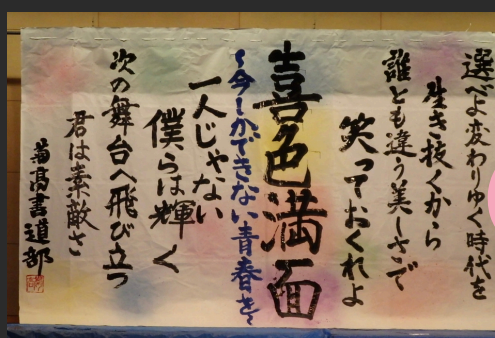 選べよ変わりゆく時代を
生き抜くから
誰とも違う美しさで
笑っておくれよ
喜色満面
〜今しかできない青春を〜
一人じゃない
僕らは輝く
次の舞台へ飛び立つ
君は素敵さ
菊高書道部